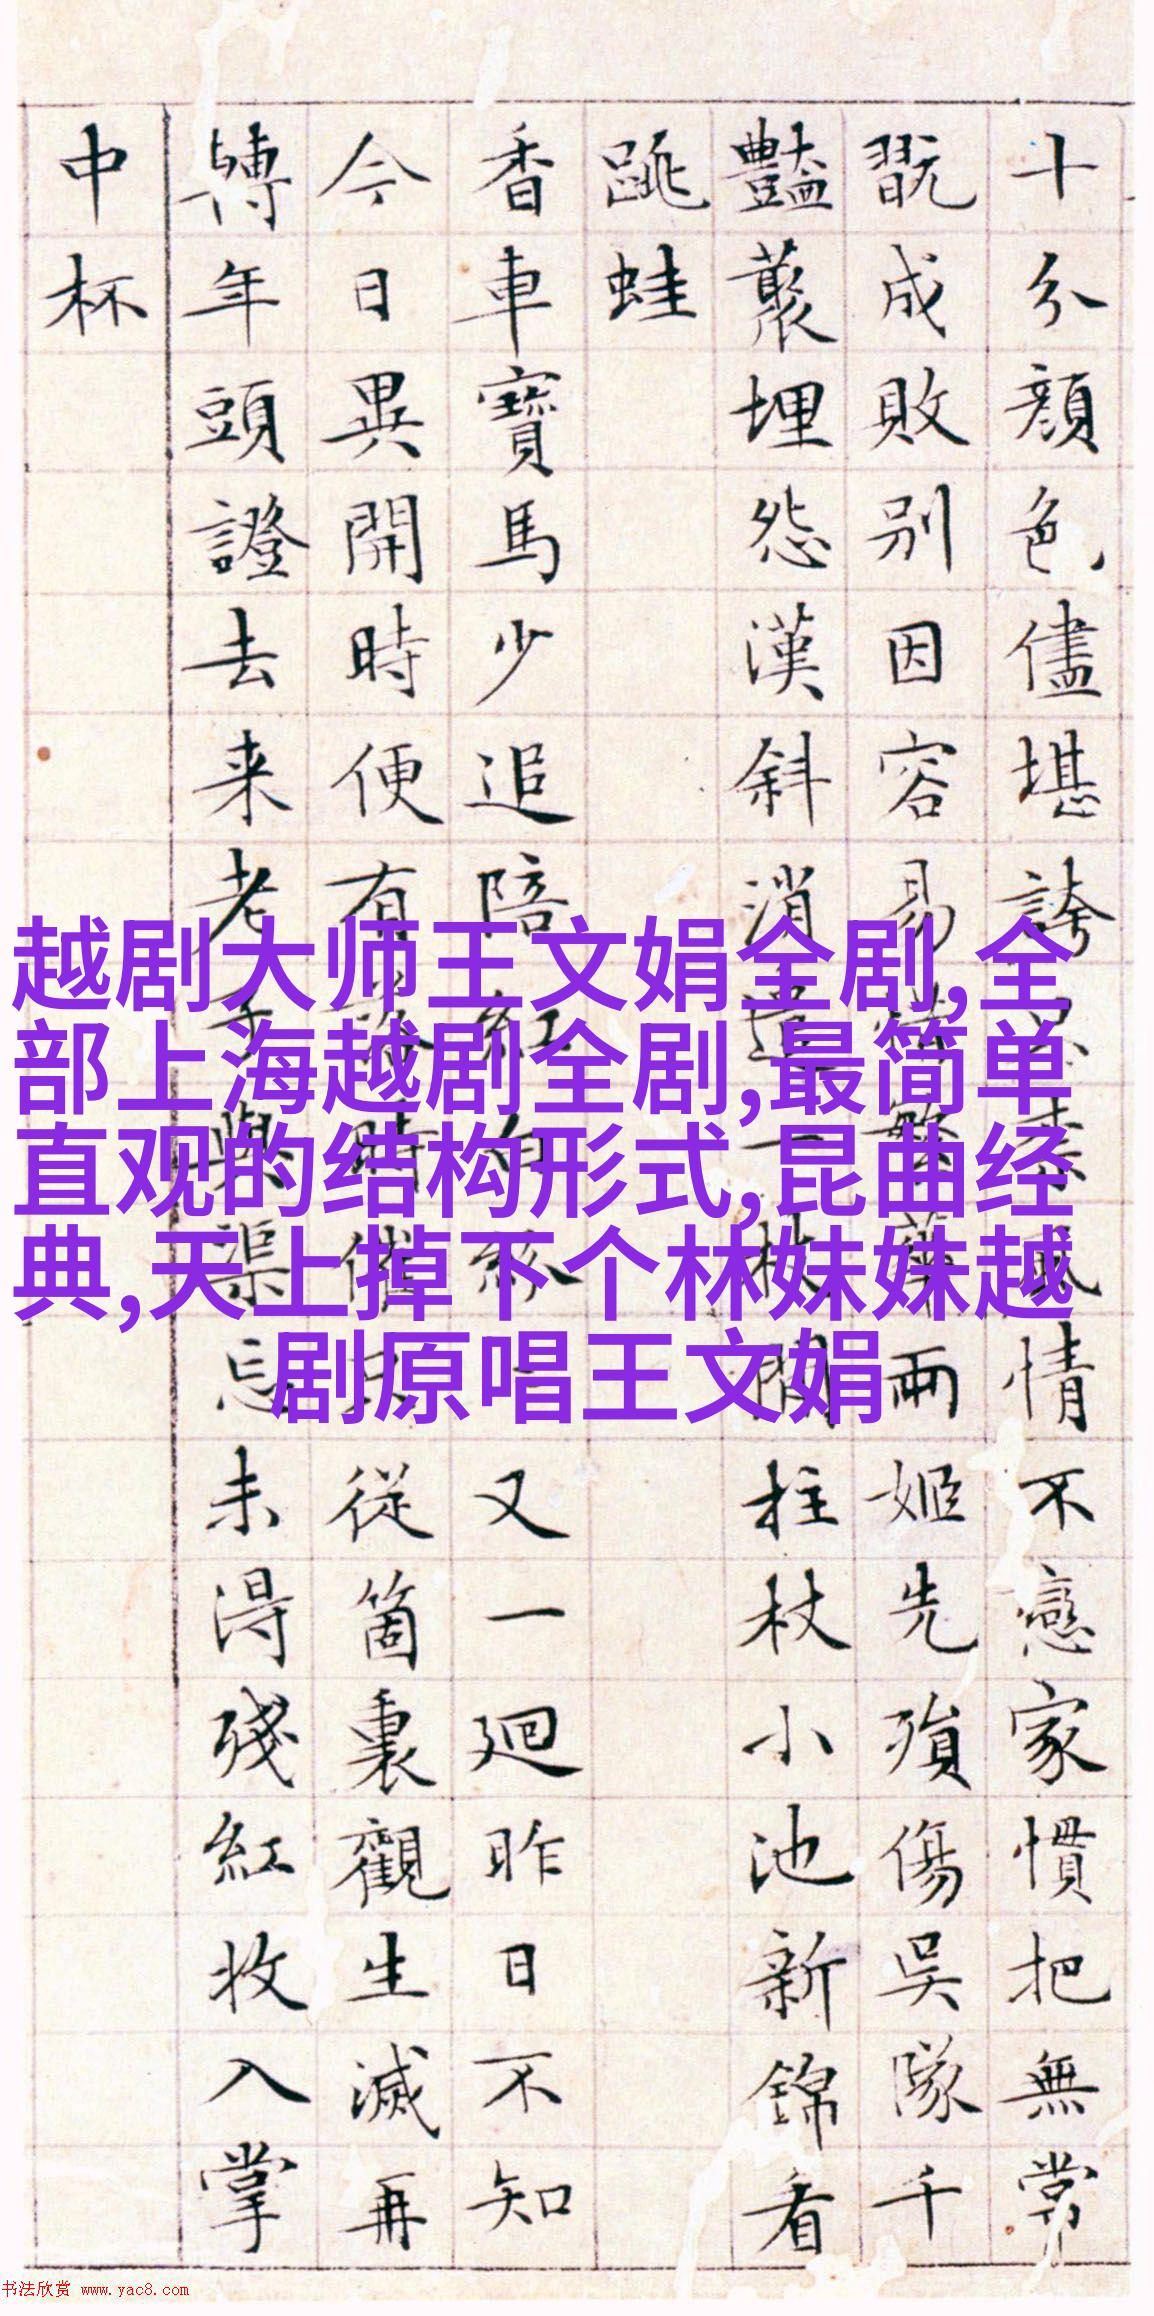 十分顔色儘堪誇情不戀家慣把無常
翫成敗別因容易繁華兩姬先殞傷吳隊千
豔叢埋怨漢斜消遣一枝閒柱杖小池新錦看
跳蛙
香車寶馬少追陪紅白紛又一迴昨日不知
今日異開時便有時催從箇裏觀生滅再
轉年頭證去来老子與渠忘未得殘紅收入掌
中杯
越剧大师王文娟全剧,全
部上海越剧全剧,最简单
直观的结构形式,昆曲经
典,天上掉下个林妹妹越
剧原唱王文娟
书法欣赏 www.yac8.com